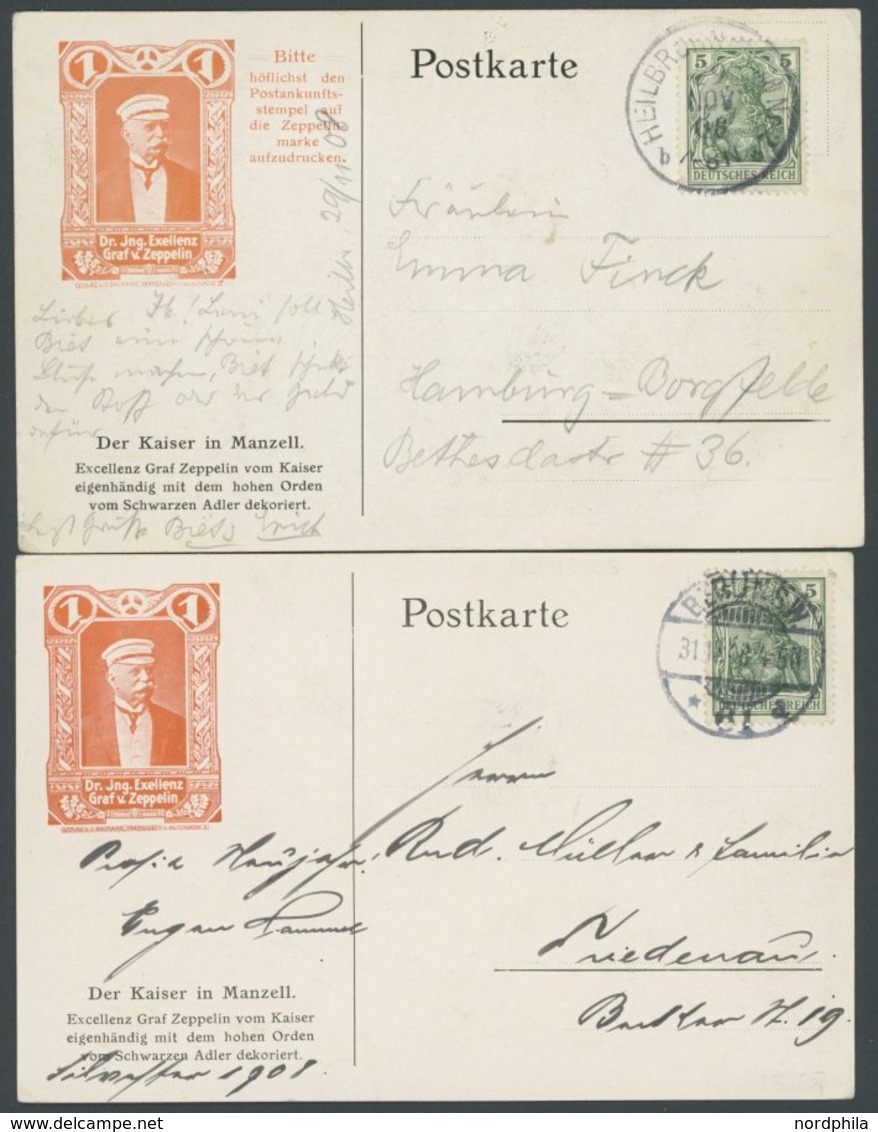 1 1
Dr. Jng. Exellenz
Graf v. Zeppelin
Bitte
höflichst den
Postankunfts-
stempel auf
die Zeppelin
marke
aufzudrucken.
Postkarte
HEILBRONN
NOV
08
5 5
DEUTSCHES REICH
Heilbr. 29/11 08
Fräulein
Emma Finck
Hamburg=Borgfelde
Bethesdastr # 36.
Liebes
soll
Biet
machen, Biet
den Stoff oder
dafür
Der Kaiser in Manzell.
Excellenz Graf Zeppelin vom Kaiser
eigenhändig mit dem hohen Orden
vom Schwarzen Adler dekoriert.
Erich
1 1
Dr. Jng. Exellenz
Graf v. Zeppelin
Postkarte
BERLIN SW
31.12.08 4-5N
* 61 a
5
DEUTSCHES REICH
Herrn
Rud. Müller & Familie
Friedenau.
19.
Prosit Neujahr!
Eugen
Der Kaiser in Manzell.
Excellenz Graf Zeppelin vom Kaiser
eigenhändig mit dem hohen Orden
vom Schwarzen Adler dekoriert.
Silvester 1908
nordphila